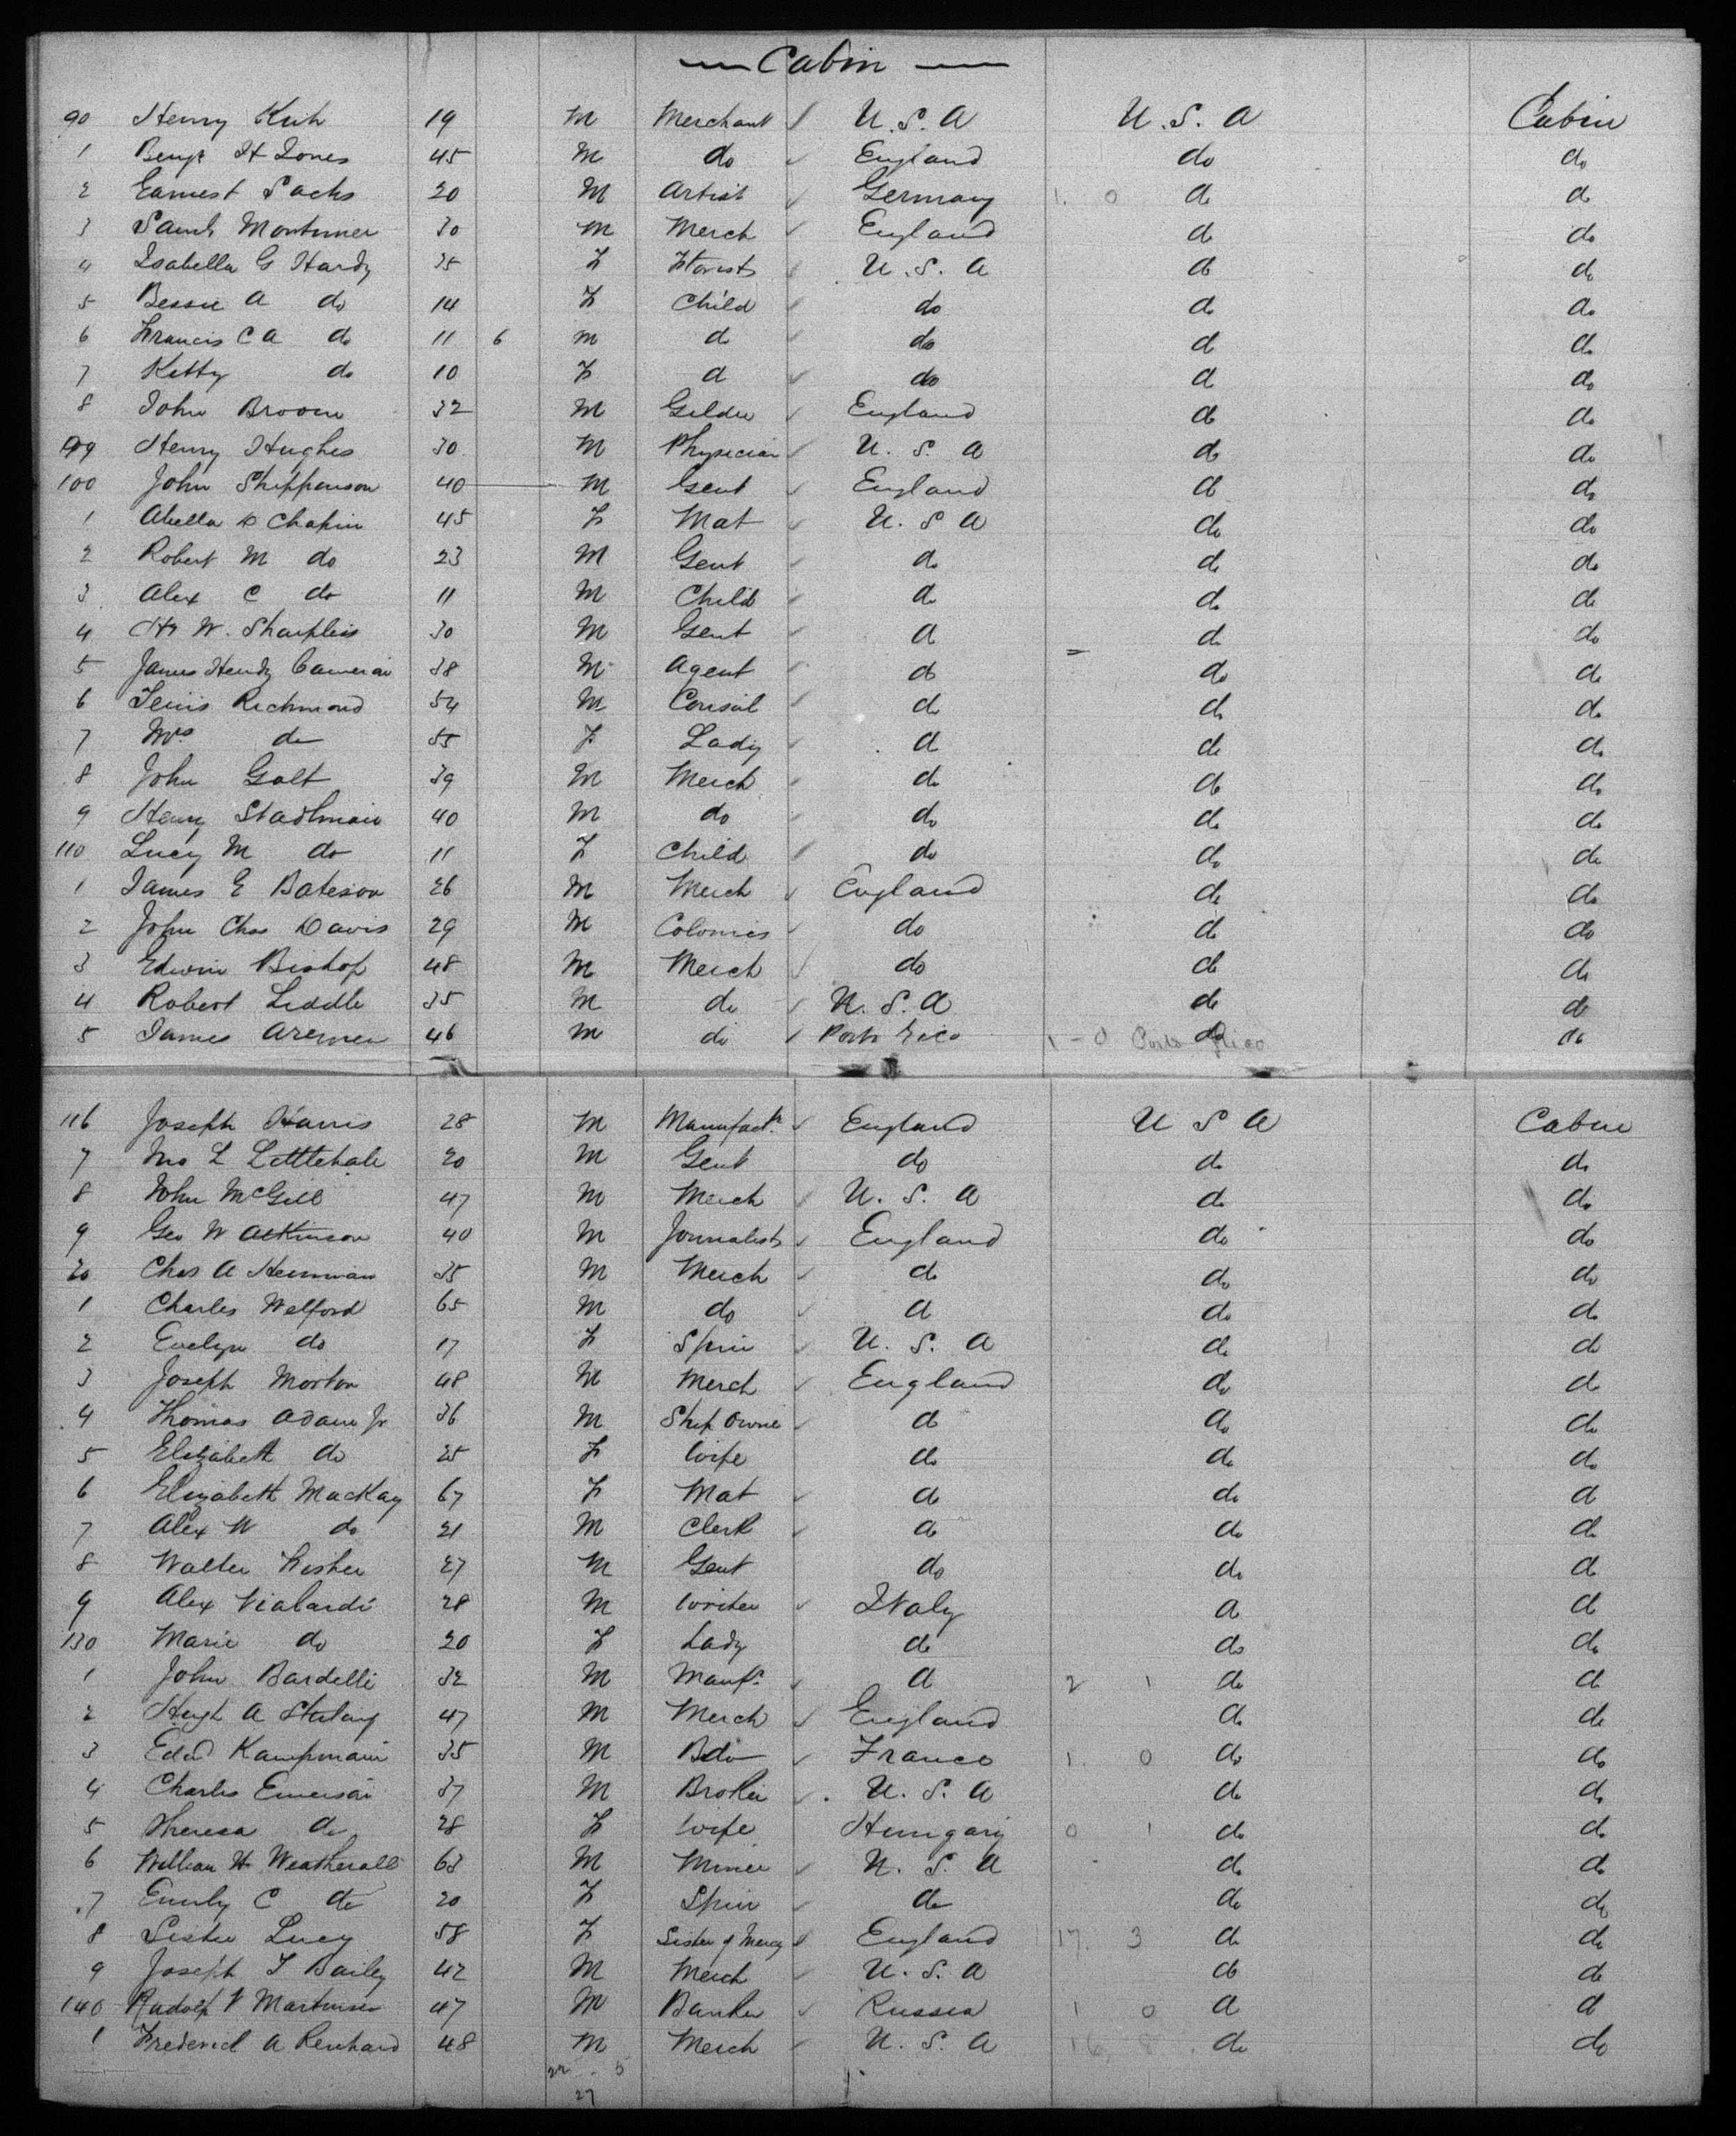 Cabin
90 Henry Kuh 19 M Merchant U.S.A U.S.A Cabin
1 Benj H Jones 45 M do England do do
2 Earnest Sachs 20 M Artist Germany 1. 0 do do
3 Saml Mortimer 30 M Merch England do do
4 Isabella G Hardy 35 F U.S.A do do
5 Bessie A do 14 F Child do do do
6 Francis C A do 11 6 M do do do do
7 Ketty do 10 F do do do do
8 John Broom 32 M Gilder England do do
99 Henry Hughes 30 M Physician U.S.A do do
100 John Shipperson 40 M Gent England do do
1 Abella Chapin 45 F Mat U.S A do do
2 Robert M do 23 M Gent do do do
3 Alex C do 11 M Child do do do
4 W. Sharpless 30 M Gent do do do
5 James Hendy Cameron 38 M Agent do do do
6 Lewis Richmond 54 M Consul do do do
7 Mrs do 55 F Lady do do do
8 John Galt 39 M Merch do do do
9 Henry Stadlmair 40 M do do do do
110 Lucy M do 11 F Child do do do
1 James E Bateson 26 M Merch England do do
2 John Chas Davis 29 M Colonies do do do
3 Edwin Bishop 48 M Merch do do do
4 Robert Liddle 35 M do U.S.A do do
5 James 46 M do Porto Rico 1 - 0 Porto Rico do do
116 Joseph Harris 28 M Manufactr England U S A Cabin
7 Jno L Littlehale 20 M Gent do do do
8 John McGill 47 M Merch U.S.A do do
9 Geo W Atkinson 40 M Journalist England do do
20 Chas A Herrman 35 M Merch do do do
1 Charles Welford 65 M do do do do
2 Evelyn do 17 F Spin U.S.A do do
3 Joseph Morton 48 M Merch England do do
4 Thomas Adams Jr 36 M Ship Owner do do do
5 Elizabeth do 25 F Wife do do do
6 Elizabeth MacKay 67 F Mat do do do
7 Alex W do 21 M Clerk do do do
8 Walter Fisher 27 M Gent do do do
9 Alex Vialardi 28 M Writer Italy do do
130 Marie do 20 F Lady do do do
1 John Bardelli 32 M Manfr do 2 1 do do
2 Hugh A Sterling 47 M Merch England do do
3 Edwd Kaufmann 35 M do France 1. 0 do do
4 Charles Emerson 37 M Broker U.S.A do do
5 Theresa do 28 F Wife Hungary 0 1 do do
6 William H Weatherall 63 M Miner U.S.A do do
7 Emily C do 20 F Spin do do do
8 Sister Lucy 58 F Sister of Mercy England 17. 3 do do
9 Joseph T Bailey 42 M Merch U.S.A do do
140 Rudolf V Martinsen 47 M Banker Russia 1 0 do do
1 Frederick A Renhard 48 M Merch U.S.A 16, 8 do do
22 . 5
27